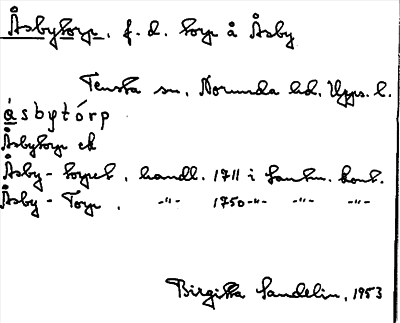 Åsbytorp, f. d. torp å Åsby
Tensta sn, Norunda hd, Upps. l.
ásbytórp
Åsbytorp ek
Åsby-torpet, handl. 1711 i Lantm. kont.
Åsby-Torp, -"- 1750 -"- -"- -"-
Birgitta Sandelin, 1953